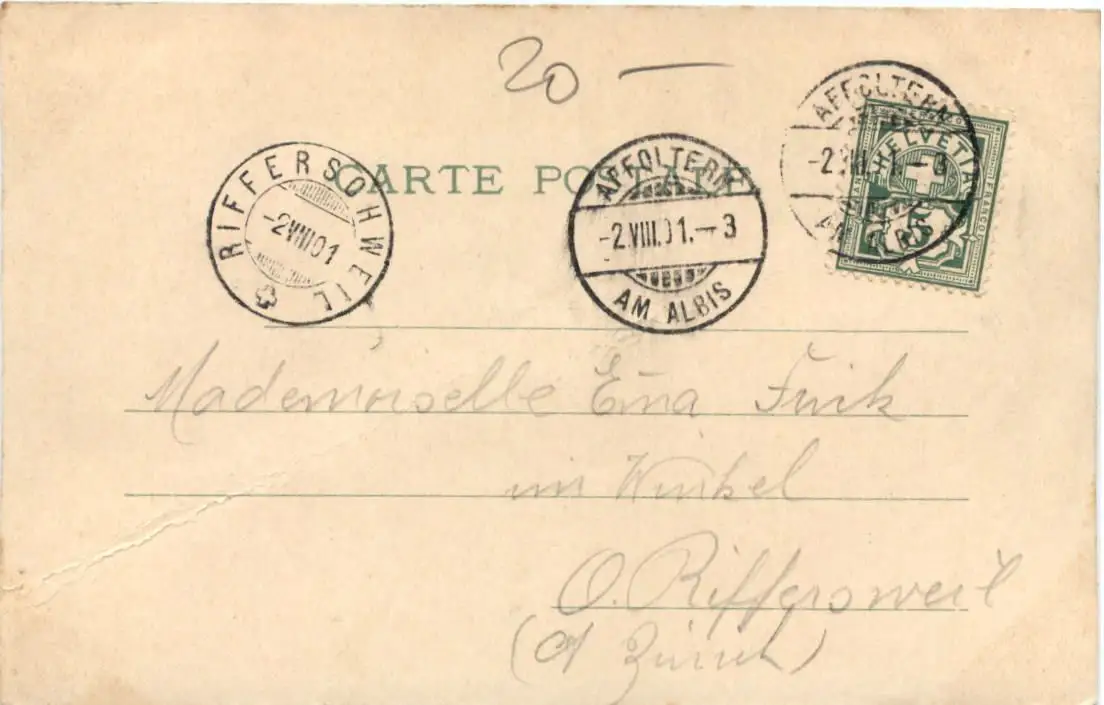 20 —
CARTE POSTALE
RIFFERSCHWEIL
-2.VIII.01
AFFOLTERN
-2.VIII.01.-3
AM ALBIS
AFFOLTERN
-2.VIII.01.-3
AM ALBIS
HELVETIA
FRANCO
5
Mademoiselle Ema Frick
im Winkel
O. Riffersweil
(Ct Zürich)